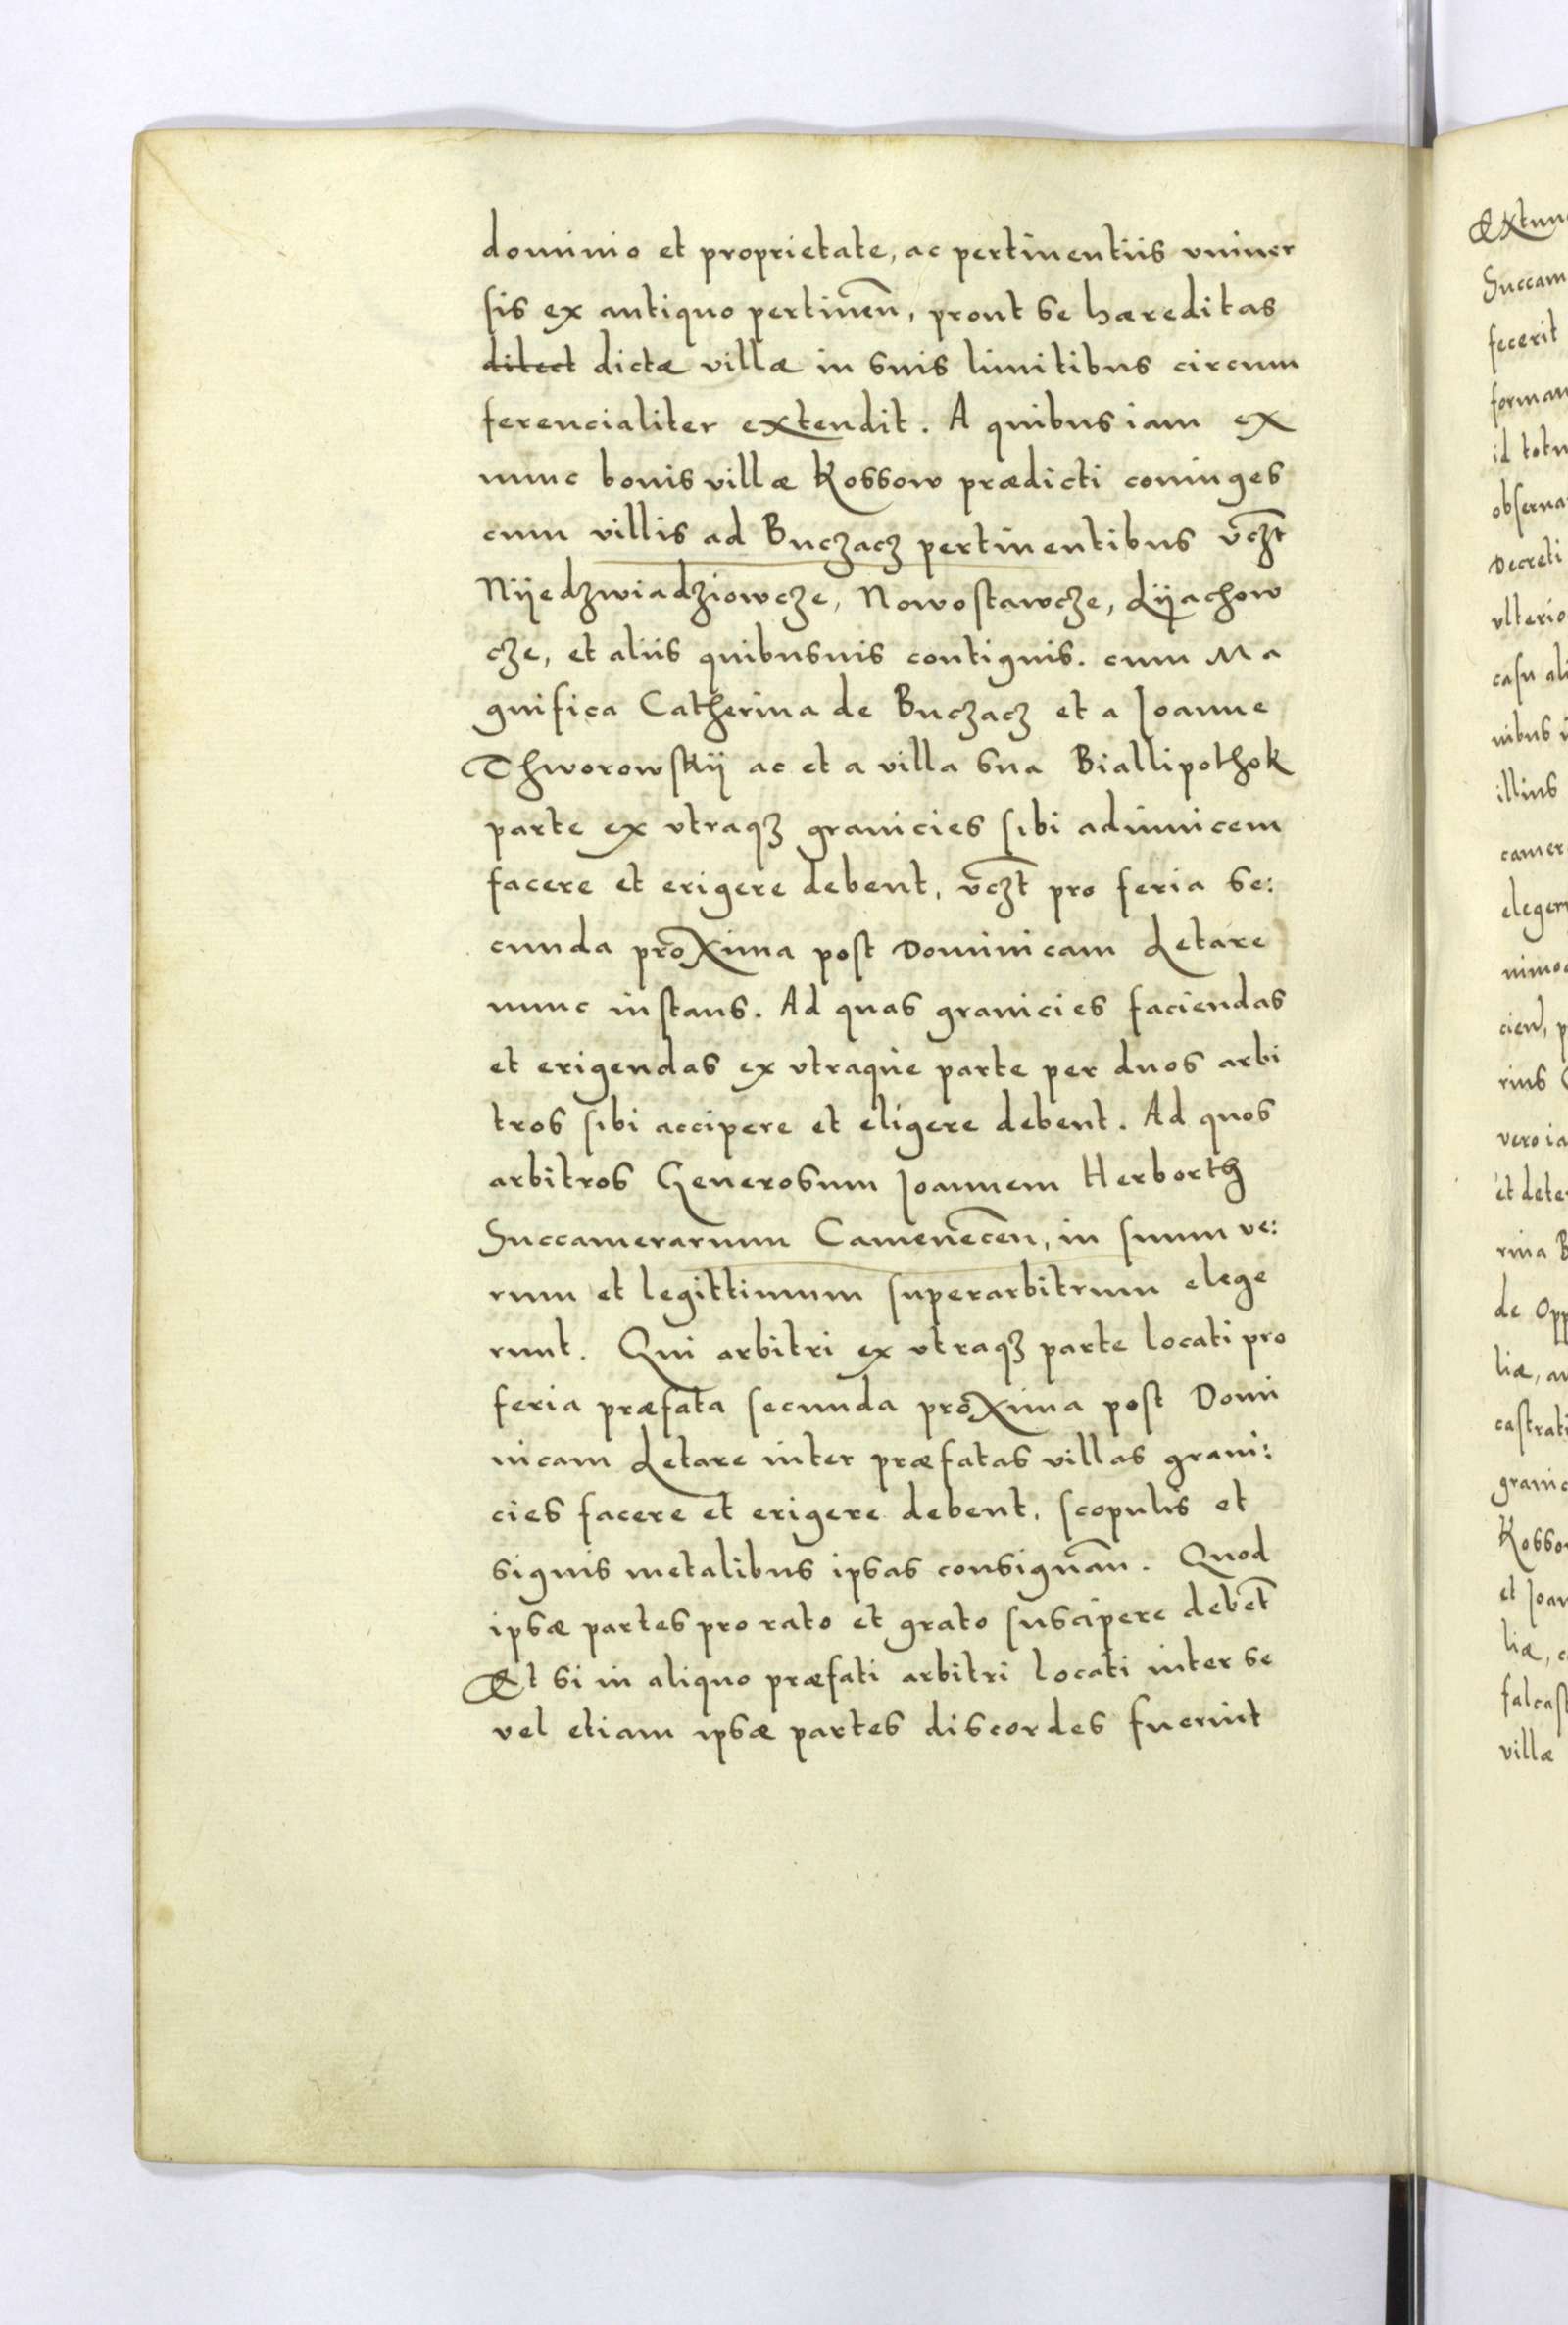 dominio et proprietate, ac pertinentiis vniuer
sis ex antiquo pertineñ, prout se hæreditas
ditect dictæ villæ in suis limitibus circum
ferencialiter extendit. A quibus iam ex
nunc bonis villæ Kossow prædicti coniuges
cum villis ad Buczacz pertinentibus vczt
Nyedzwiadziowcze, Nowostawcze, Lyachow
cze, et aliis quibusuis contiguis. cum Ma
gnifica Catherina de Buczacz et a Joanne
Thworowsky ac et a villa sua Biallipothok
parte ex vtraqz granicies sibi adinuicem
facere et erigere debent, vczt pro feria se:
cunda proxima post Dominicam Letare
nunc instans. Ad quas granicies faciendas
et erigendas ex vtraque parte per duos arbi
tros sibi accipere et eligere debent. Ad quos
arbitros Generosum Joannem Herborth
Succamerarium Cameneceñ, in suum ve:
rum et legittimum superarbitrum elege
runt. Qui arbitri ex vtraqz parte locati pro
feria præfata secunda proxima post Domi
nicam Letare inter præfatas villas grani:
cies facere et erigere debent, scopulis et
signis metalibus ipsas consignañ. Quod
ipsæ partes pro rato et grato suscipere debēt
Et si in aliquo præfati arbitri locati inter se
vel etiam ipsæ partes discordes fuerint
Succam
fecerit
forman
id totu
obserua
Decreti
vlterio
casu ali
nibus
illius
camer
eleger
nimo
cień, p
rius
vero ia
et dete
rina B
de Opp
liæ, au
castrati
granic
Kossow
et Joan
liæ, c
falcast
villæ